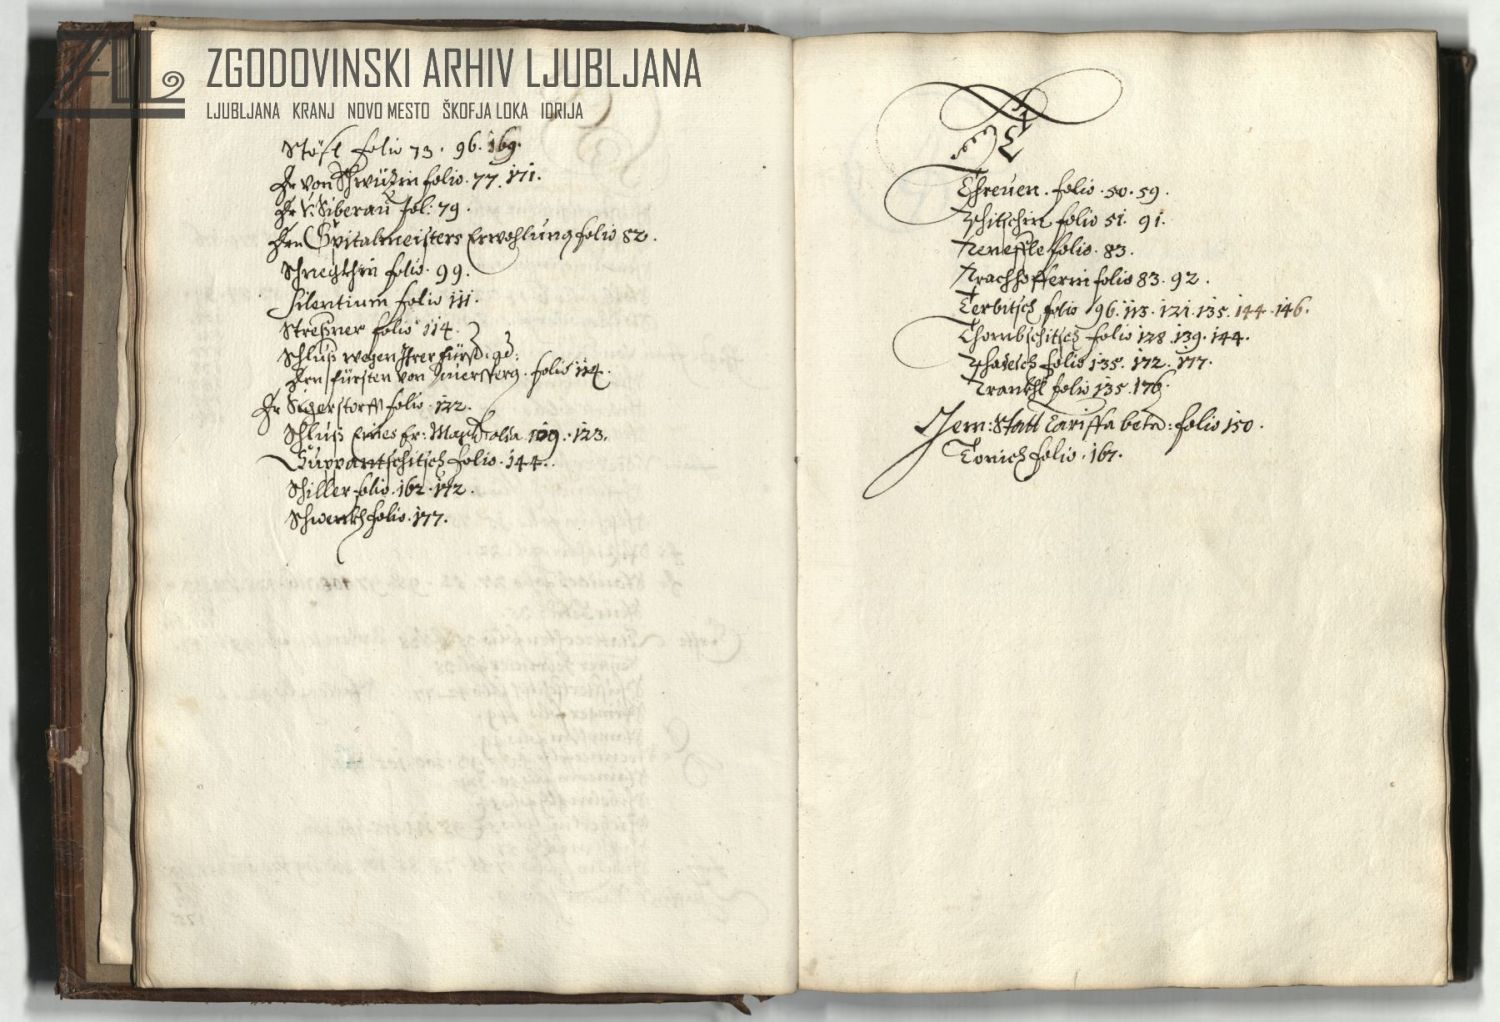 ZGODOVINSKI ARHIV LJUBLJANA
LJUBLJANA KRANJ NOVO MESTO ŠKOFJA LOKA IDRIJA
folio 73. 96. 169.
Hr von folio. 77. 171.
Hr V: Siberau fol: 79.
Den Spitalmeisters Erwöhlung folio 82.
folio. 99.
Silentium folio 111.
Streßner folio 114.
Schluß wegen Ihrer fürstl: gd:
den fürsten von Auersperg. folio 114.
Hr Sigerstorff folio. 122.
Schluß Eines Er: 109. 123.
Suppantschitsch folio. 144.
Schiller folio. 162. 172.
Schwenkh folio. 177.
T
Threüen. folio. 50. 59.
folio 51. 91.
folio. 83.
folio 83. 92.
Terbitsch folio 96. 113. 121. 135. 144. 146.
Thombschitsch folio 128. 139. 144.
folio 135. 172. 177.
folio 135. 176.
Gem: Statt Tariffa betr: folio 150.
Tonich folio. 167.